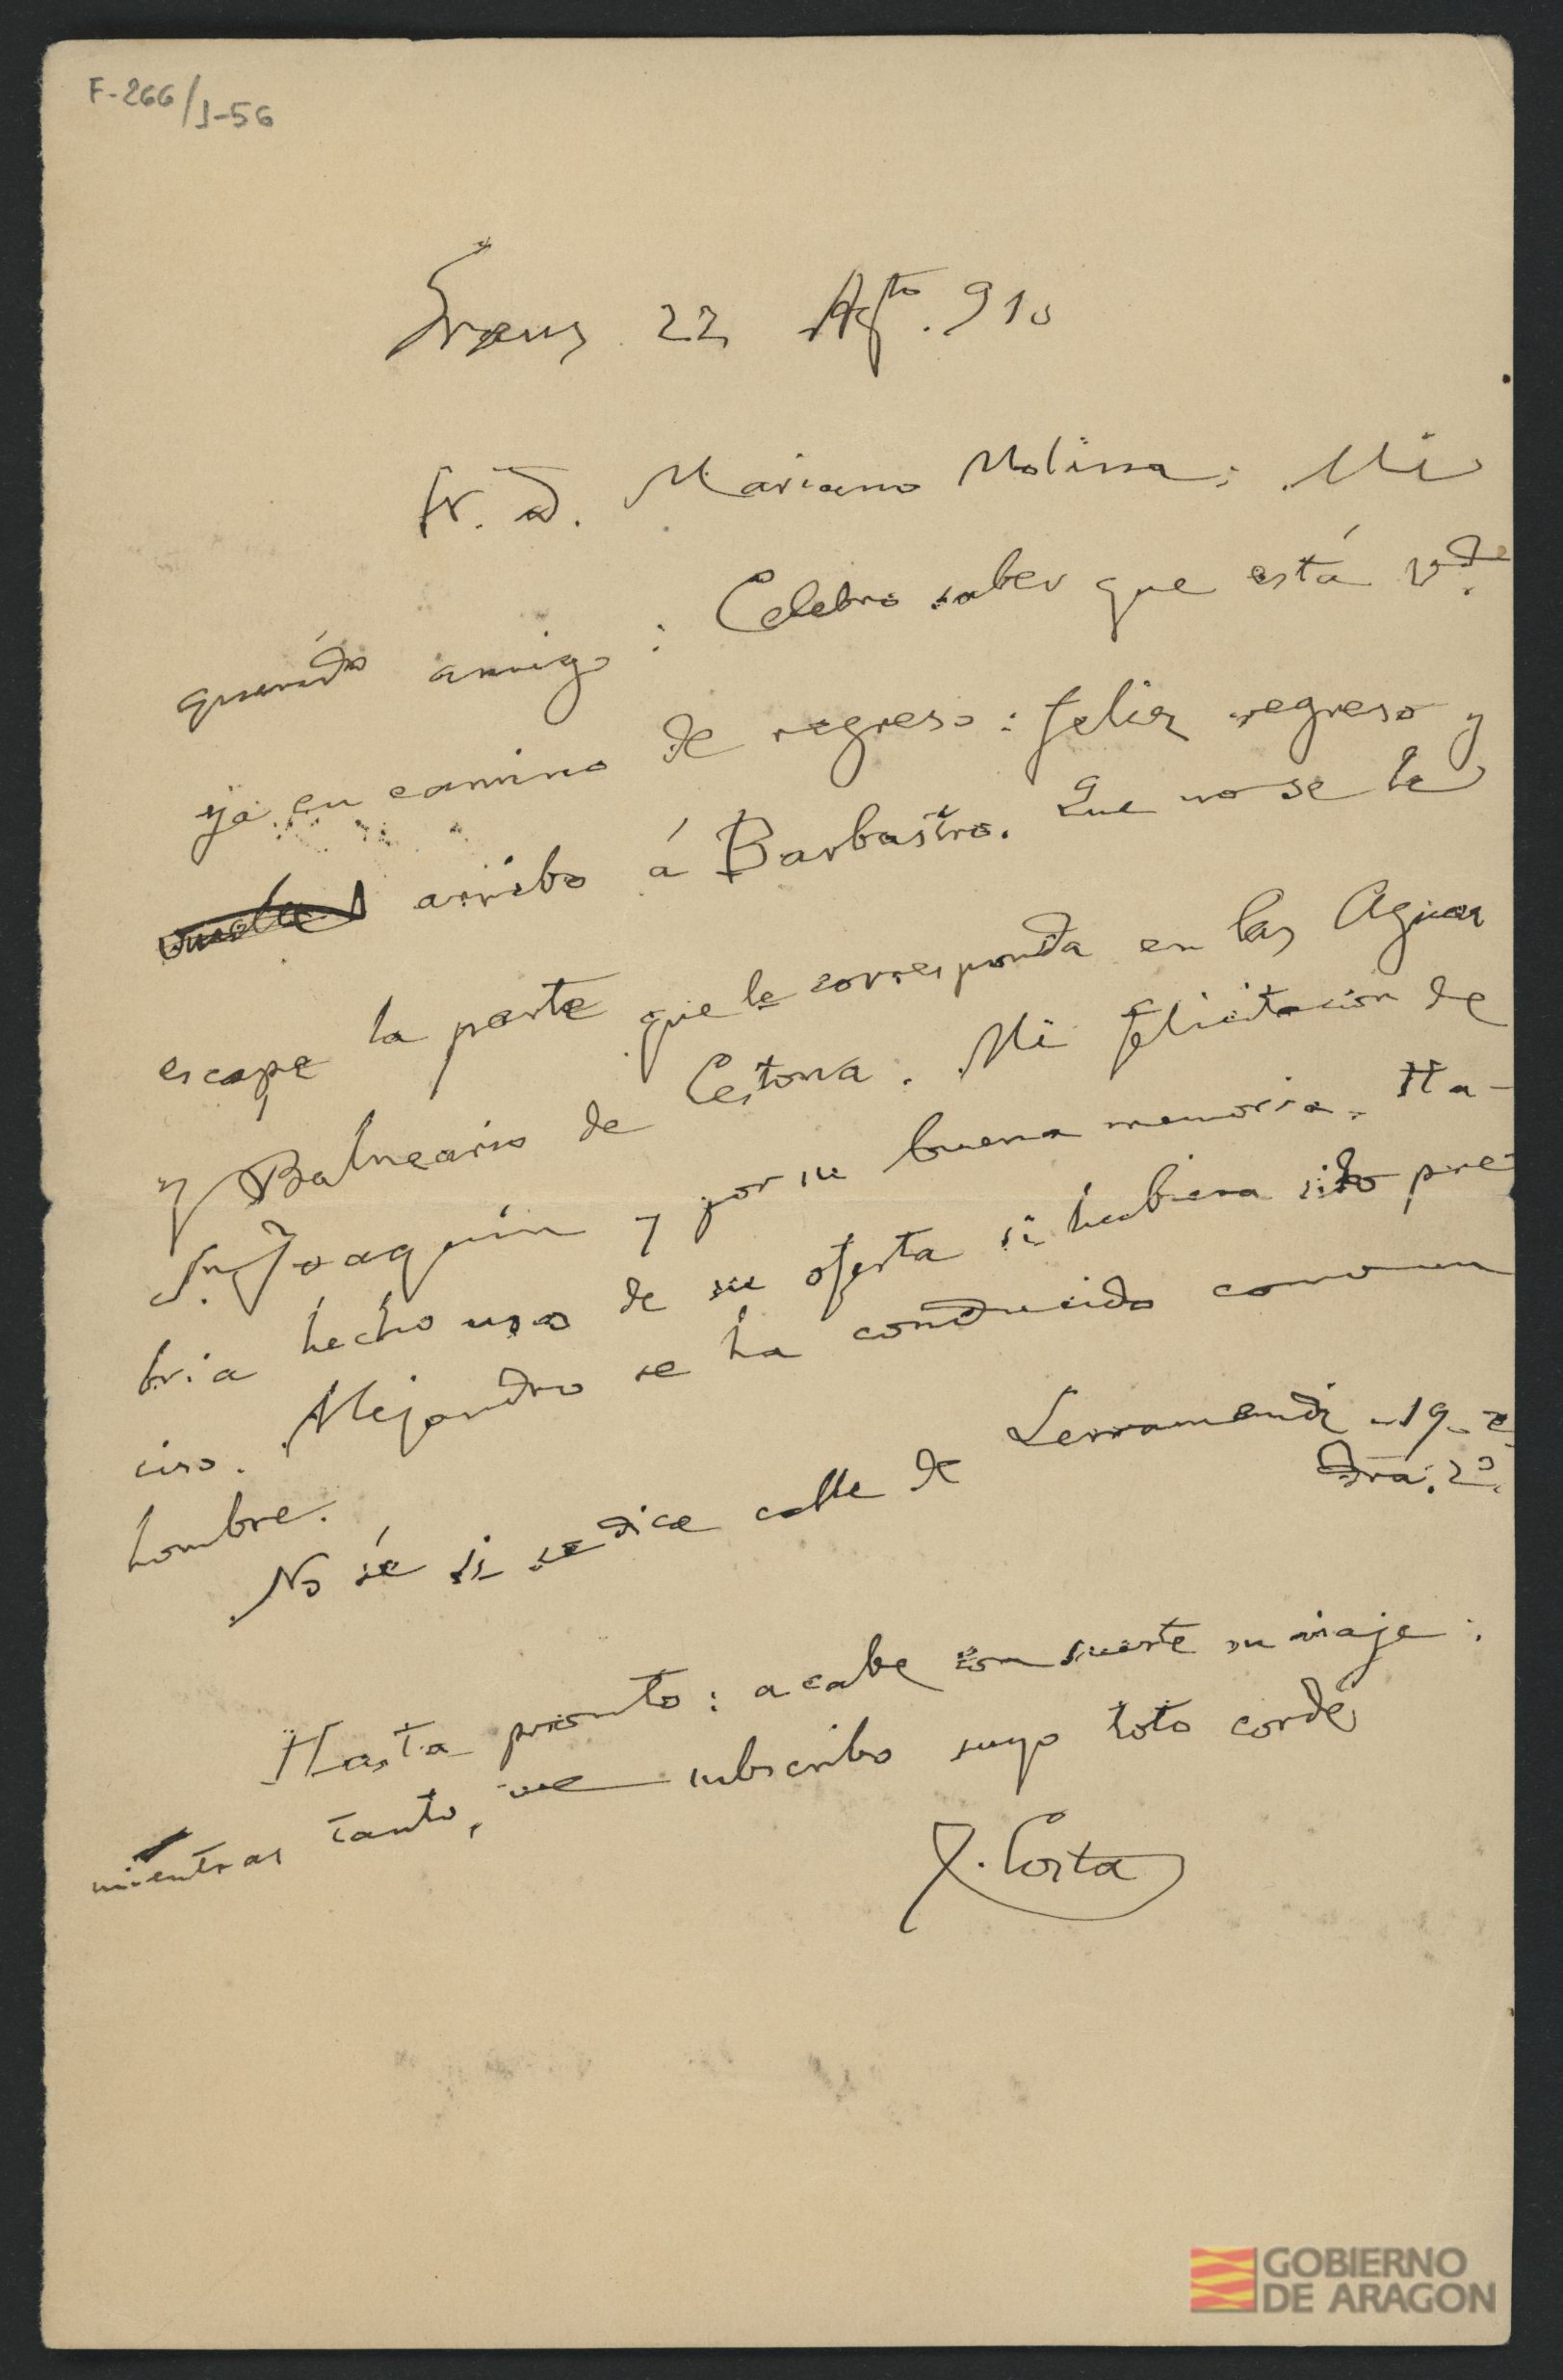 F-266/J-56
Graus 22 Agto. 910
Sr. D. Mariano Molina: Mi
querido amigo: Celebro saber que está Vd.
ya en camino de regreso: feliz regreso y
arribo á Barbastro. Que no se le
escape la parte que le corresponda en las Aguas
y Balneario de Cestona. Mi felicitación de
Sn. Joaquín y por su buena memoria. Ha-
bria hecho uso de su oferta si hubiera sido pre-
ciso. Alejandro se ha conducido como un
hombre.
No sé si se dice calle de Larramendi - 19 -
dra. 2º.
Hasta pronto: acabe con suerte su viaje:
mientras tanto, me subscribo suyo toto corde
J. Costa
GOBIERNO
DE ARAGON